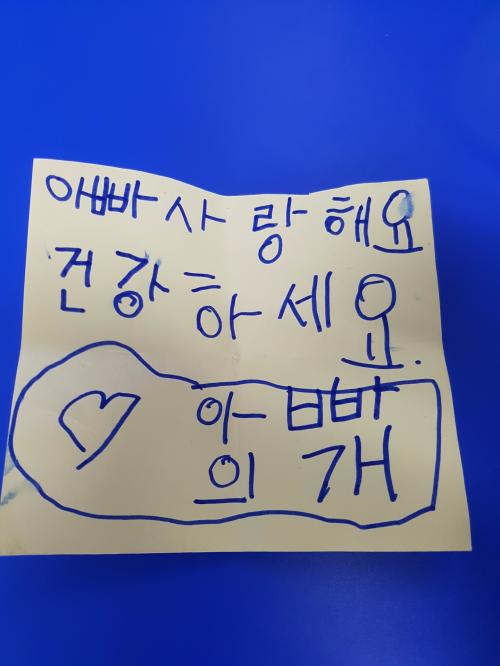 아빠사랑해요
건강하세요.
♡ 아빠
의 개